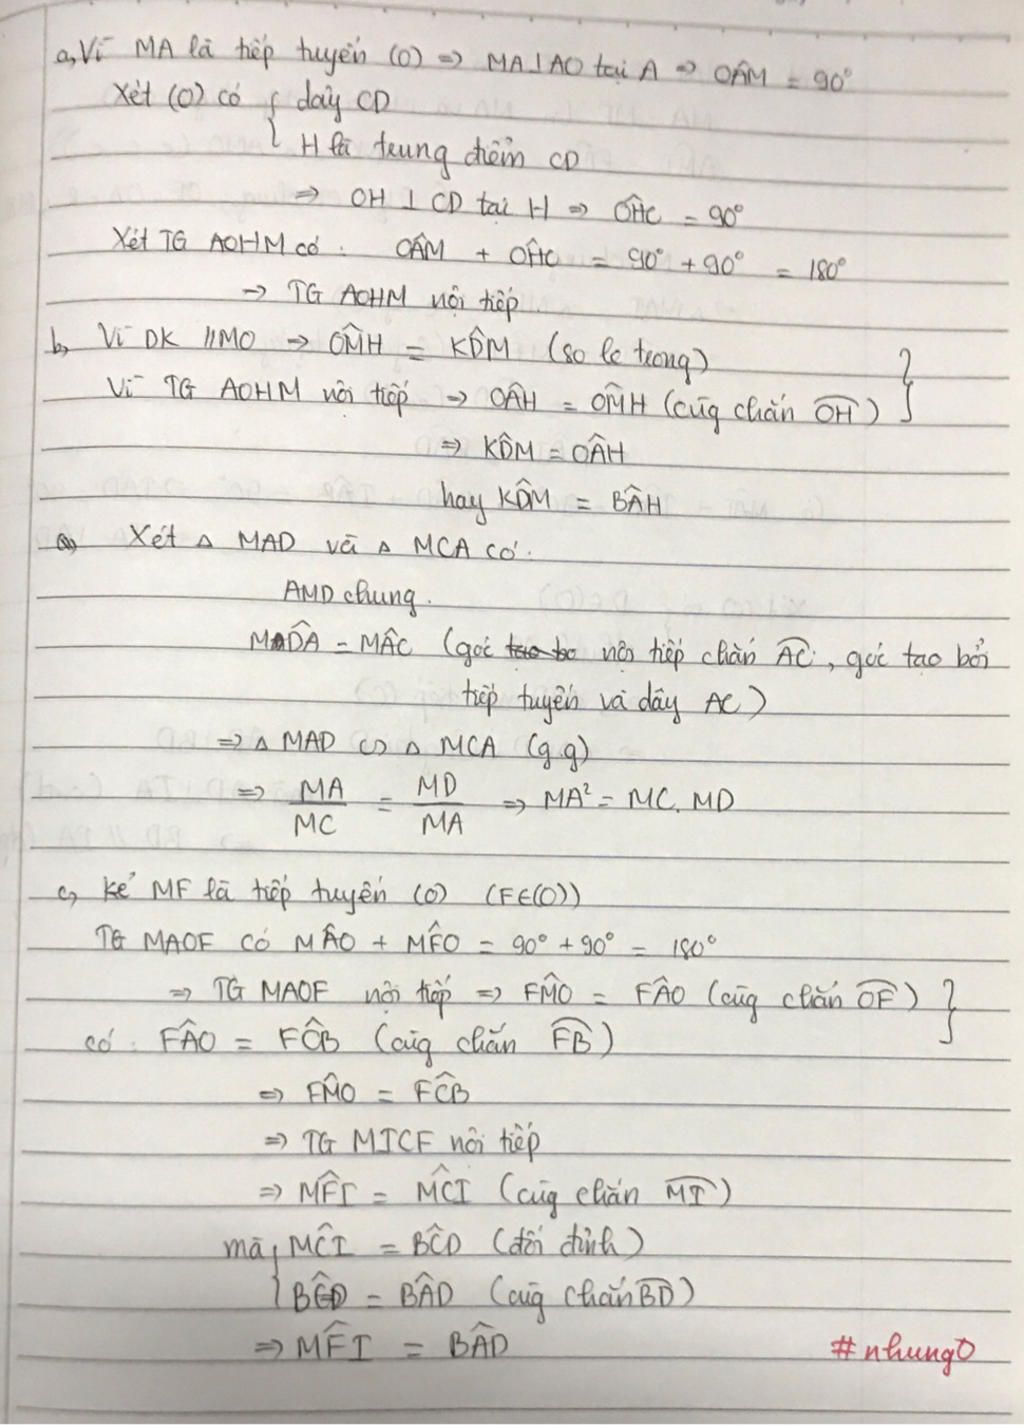 a, Vì MA là tiếp tuyến (O) => MA⊥AO tại A => OÂM = 90°
Xét (O) có { dây CD
H là trung điểm CD
=> OH ⊥ CD tại H => OĤC = 90°
Xét TG AOHM có: OÂM + OĤC = 90° + 90° = 180°
-> TG AOHM nội tiếp
b, Vì DK //MO -> OM̂H = KD̂M (so le trong) }
Vì TG AOHM nội tiếp -> OÂH = OM̂H (cùng chắn OH) }
=> KD̂M = OÂH
hay KD̂M = BÂH
Xét △ MAD và △ MCA có:
AMD chung.
MD̂A = MÂC (góc nội tiếp chắn AC, góc tạo bởi
tiếp tuyến và dây AC)
=> △ MAD ∽ △ MCA (g.g)
=> MA/MC = MD/MA => MA² = MC. MD
c, kẻ MF là tiếp tuyến (O) (F∈(O))
TG MAOF có MÂO + MF̂O = 90° + 90° = 180°
=> TG MAOF nội tiếp => FM̂O = FÂO (cùng chắn OF) }
có: FÂO = FĈB (cùng chắn FB)
=> FM̂O = FĈB
=> TG MICF nội tiếp
=> MF̂I = MĈI (cùng chắn MI)
mà { MĈI = BĈD (đối đỉnh)
BĈD = BÂD (cùng chắn BD)
=> MF̂I = BÂD #nhung0